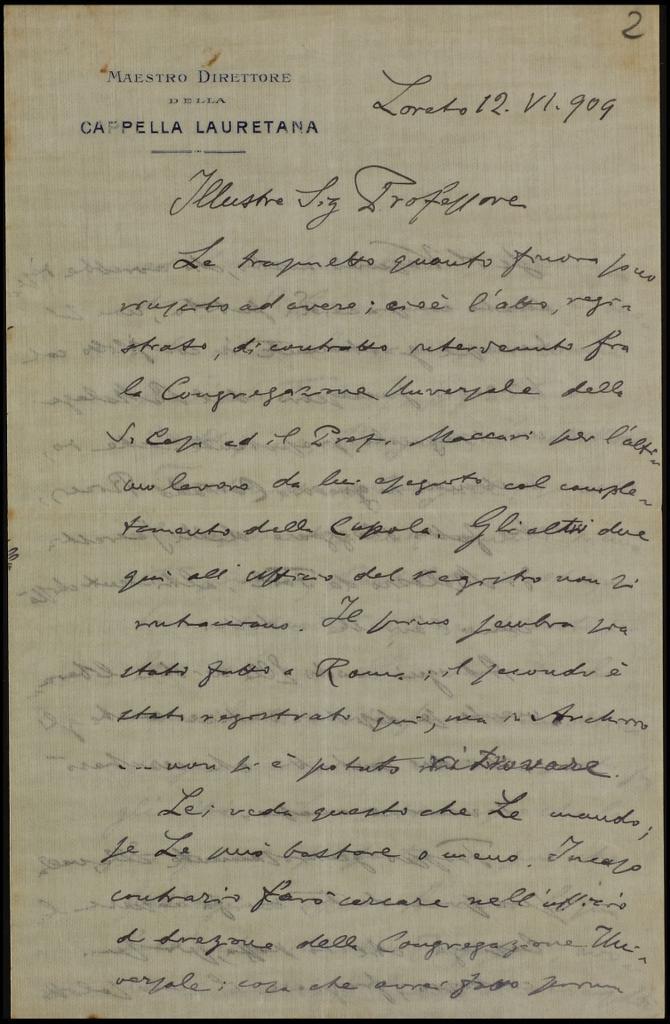 2
MAESTRO DIRETTORE
DELLA
CAPPELLA LAURETANA
Loreto 12. VI. 909
Illustre Sig Professore
Le trasmetto quanto finora sono
riuscito ad avere; cioè l'atto, regi-
strato, di contratto intervenuto fra
la Congregazione Universale della
S. Casa ed il Prof. Maccari per l'ulti-
mo lavoro da lui eseguito col comple-
tamento della Cupola. Gli altri due
qui all'ufficio del registro non si
rintracciano. Il primo sembra sia
stato fatto a Roma; il secondo è
stato registrato qui, ma in Archivio
... non si è potuto ritrovare.
Lei veda questo che Le mando;
se Le può bastare o meno. In caso
contrario farò cercare nell'ufficio
di direzione della Congregazione Uni-
versale; cosa che avrei fatto prima